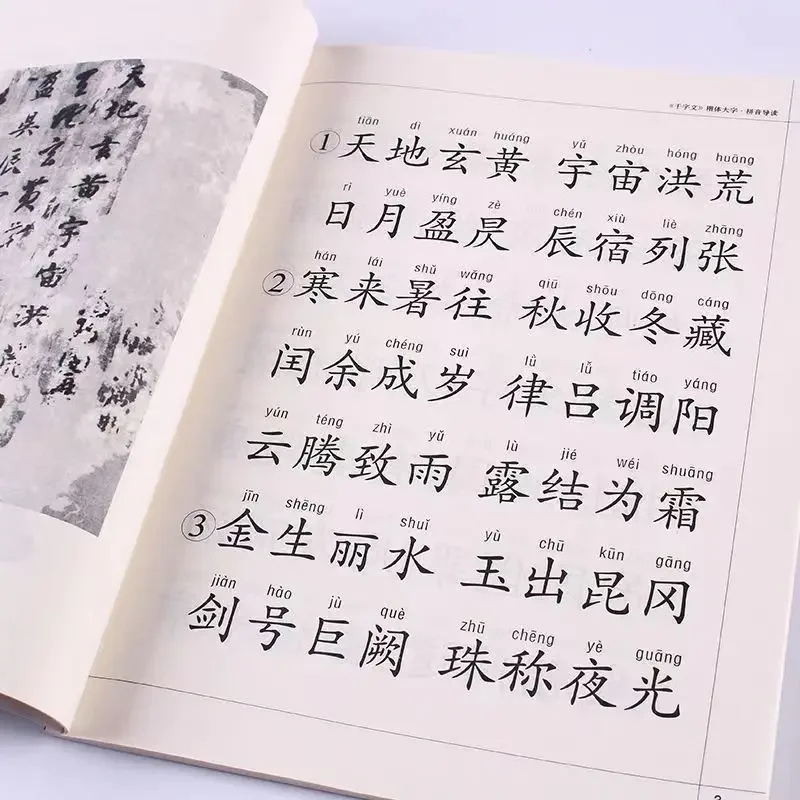 《千字文》楷体大字·拼音导读
tiān dì xuán huáng yǔ zhòu hóng huāng
①天地玄黄 宇宙洪荒
rì yuè yíng zè chén xiù liè zhāng
日月盈昃 辰宿列张
hán lái shǔ wǎng qiū shōu dōng cáng
②寒来暑往 秋收冬藏
rùn yú chéng suì lǜ lǚ tiáo yáng
闰余成岁 律吕调阳
yún téng zhì yǔ lù jié wéi shuāng
云腾致雨 露结为霜
jīn shēng lì shuǐ yù chū kūn gāng
③金生丽水 玉出昆冈
jiàn hào jù què zhū chēng yè guāng
剑号巨阙 珠称夜光